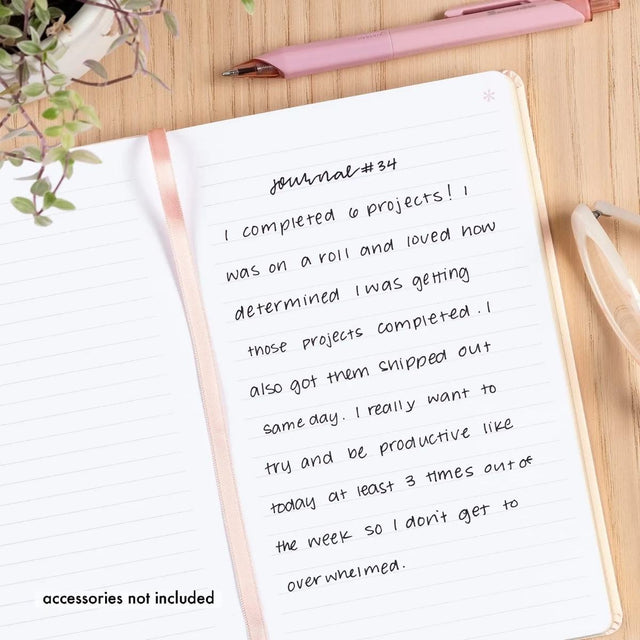 journal #34
I completed 6 projects! I
was on a roll and loved how
determined I was getting
those projects completed. I
also got them shipped out
same day. I really want to
try and be productive like
today at least 3 times out of
the week so I don't get to
overwhelmed.
accessories not included